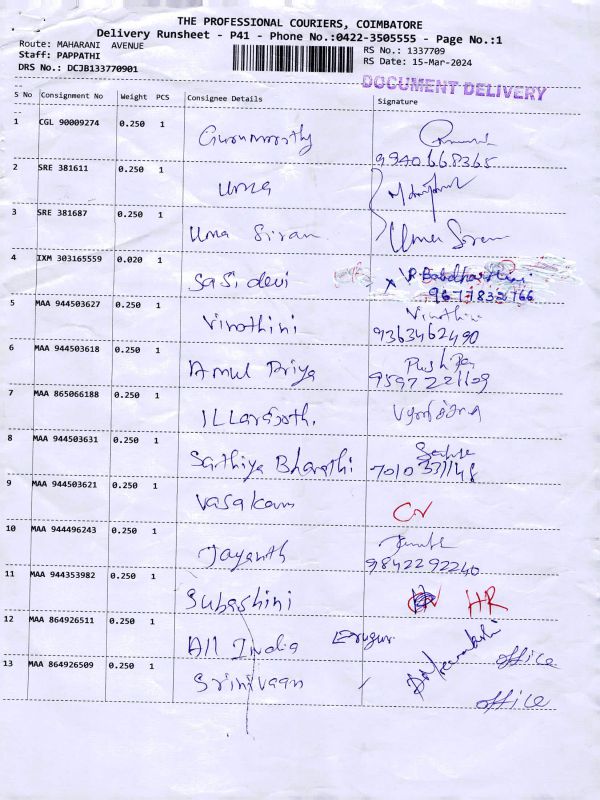 THE PROFESSIONAL COURIERS, COIMBATORE
Delivery Runsheet - P41 - Phone No.:0422-3505555 - Page No.:1
Route: MAHARANI AVENUE
Staff: PAPPATHI
DRS No.: DCJB133770901
RS No.: 1337709
RS Date: 15-Mar-2024
DOCUMENT DELIVERY
S No Consignment No Weight PCS Consignee Details Signature
1 CGL 90009274 0.250 1 Gurumoorthy
9940668365
2 SRE 381611 0.250 1 Uma
3 SRE 381687 0.250 1 Uma Siran
4 IXM 303165559 0.020 1 Sasi devi
5 MAA 944503627 0.250 1 Vinothini Vinothini
9363462490
6 MAA 944503618 0.250 1 Amul Priya
9597221109
7 MAA 865066188 0.250 1
8 MAA 944503631 0.250 1 Sathiya Bharathi
7010331148
9 MAA 944503621 0.250 1 Vasakam CN
10 MAA 944496243 0.250 1 Jayanth
9842292240
11 MAA 944353982 0.250 1 Subashini HR
12 MAA 864926511 0.250 1 All India office
13 MAA 864926509 0.250 1 Srinivasan office